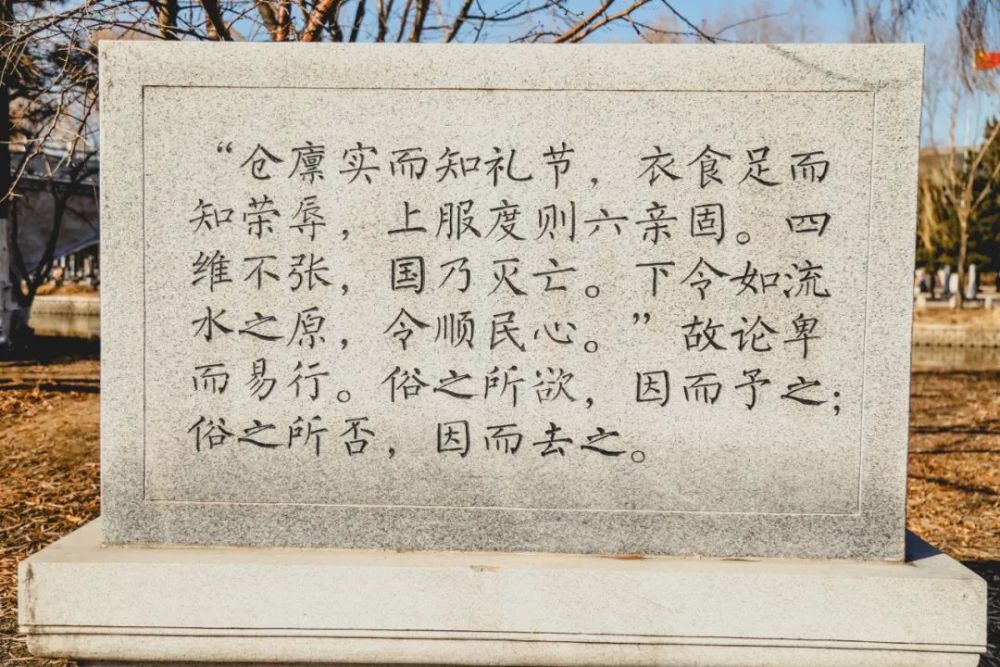 “仓廪实而知礼节，衣食足而
知荣辱，上服度则六亲固。四
维不张，国乃灭亡。下令如流
水之原，令顺民心。”故论卑
而易行。俗之所欲，因而予之；
俗之所否，因而去之。